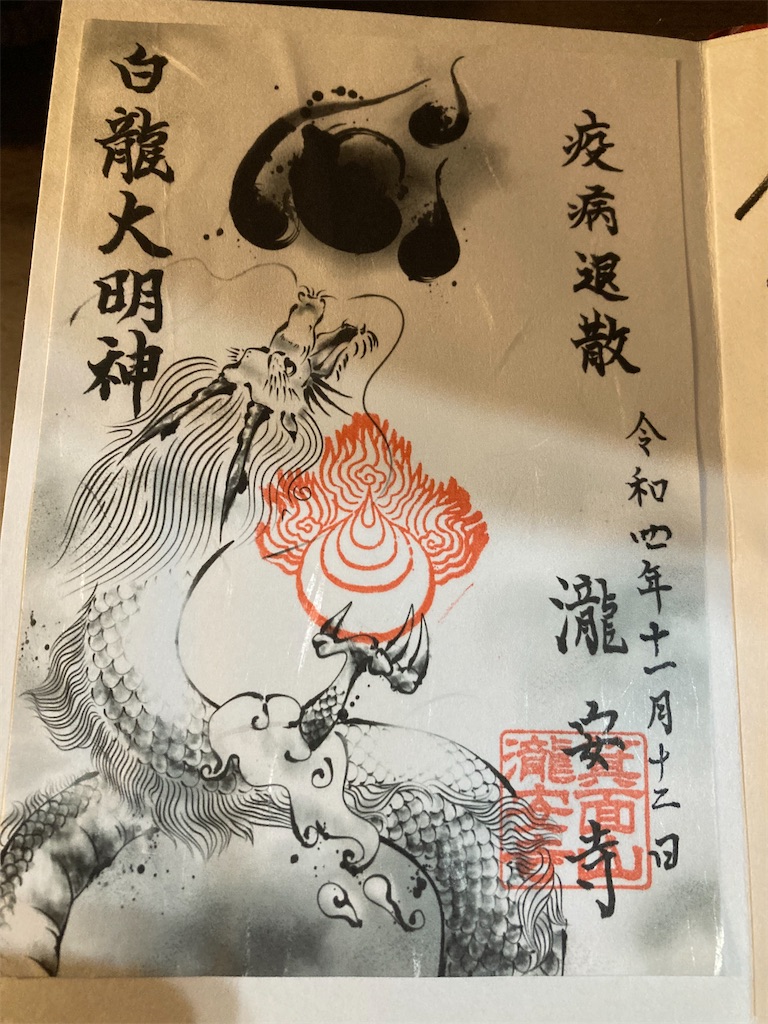 疫病退散
令和四年十一月十二日
瀧安寺
箕面山
瀧安寺
白龍大明神